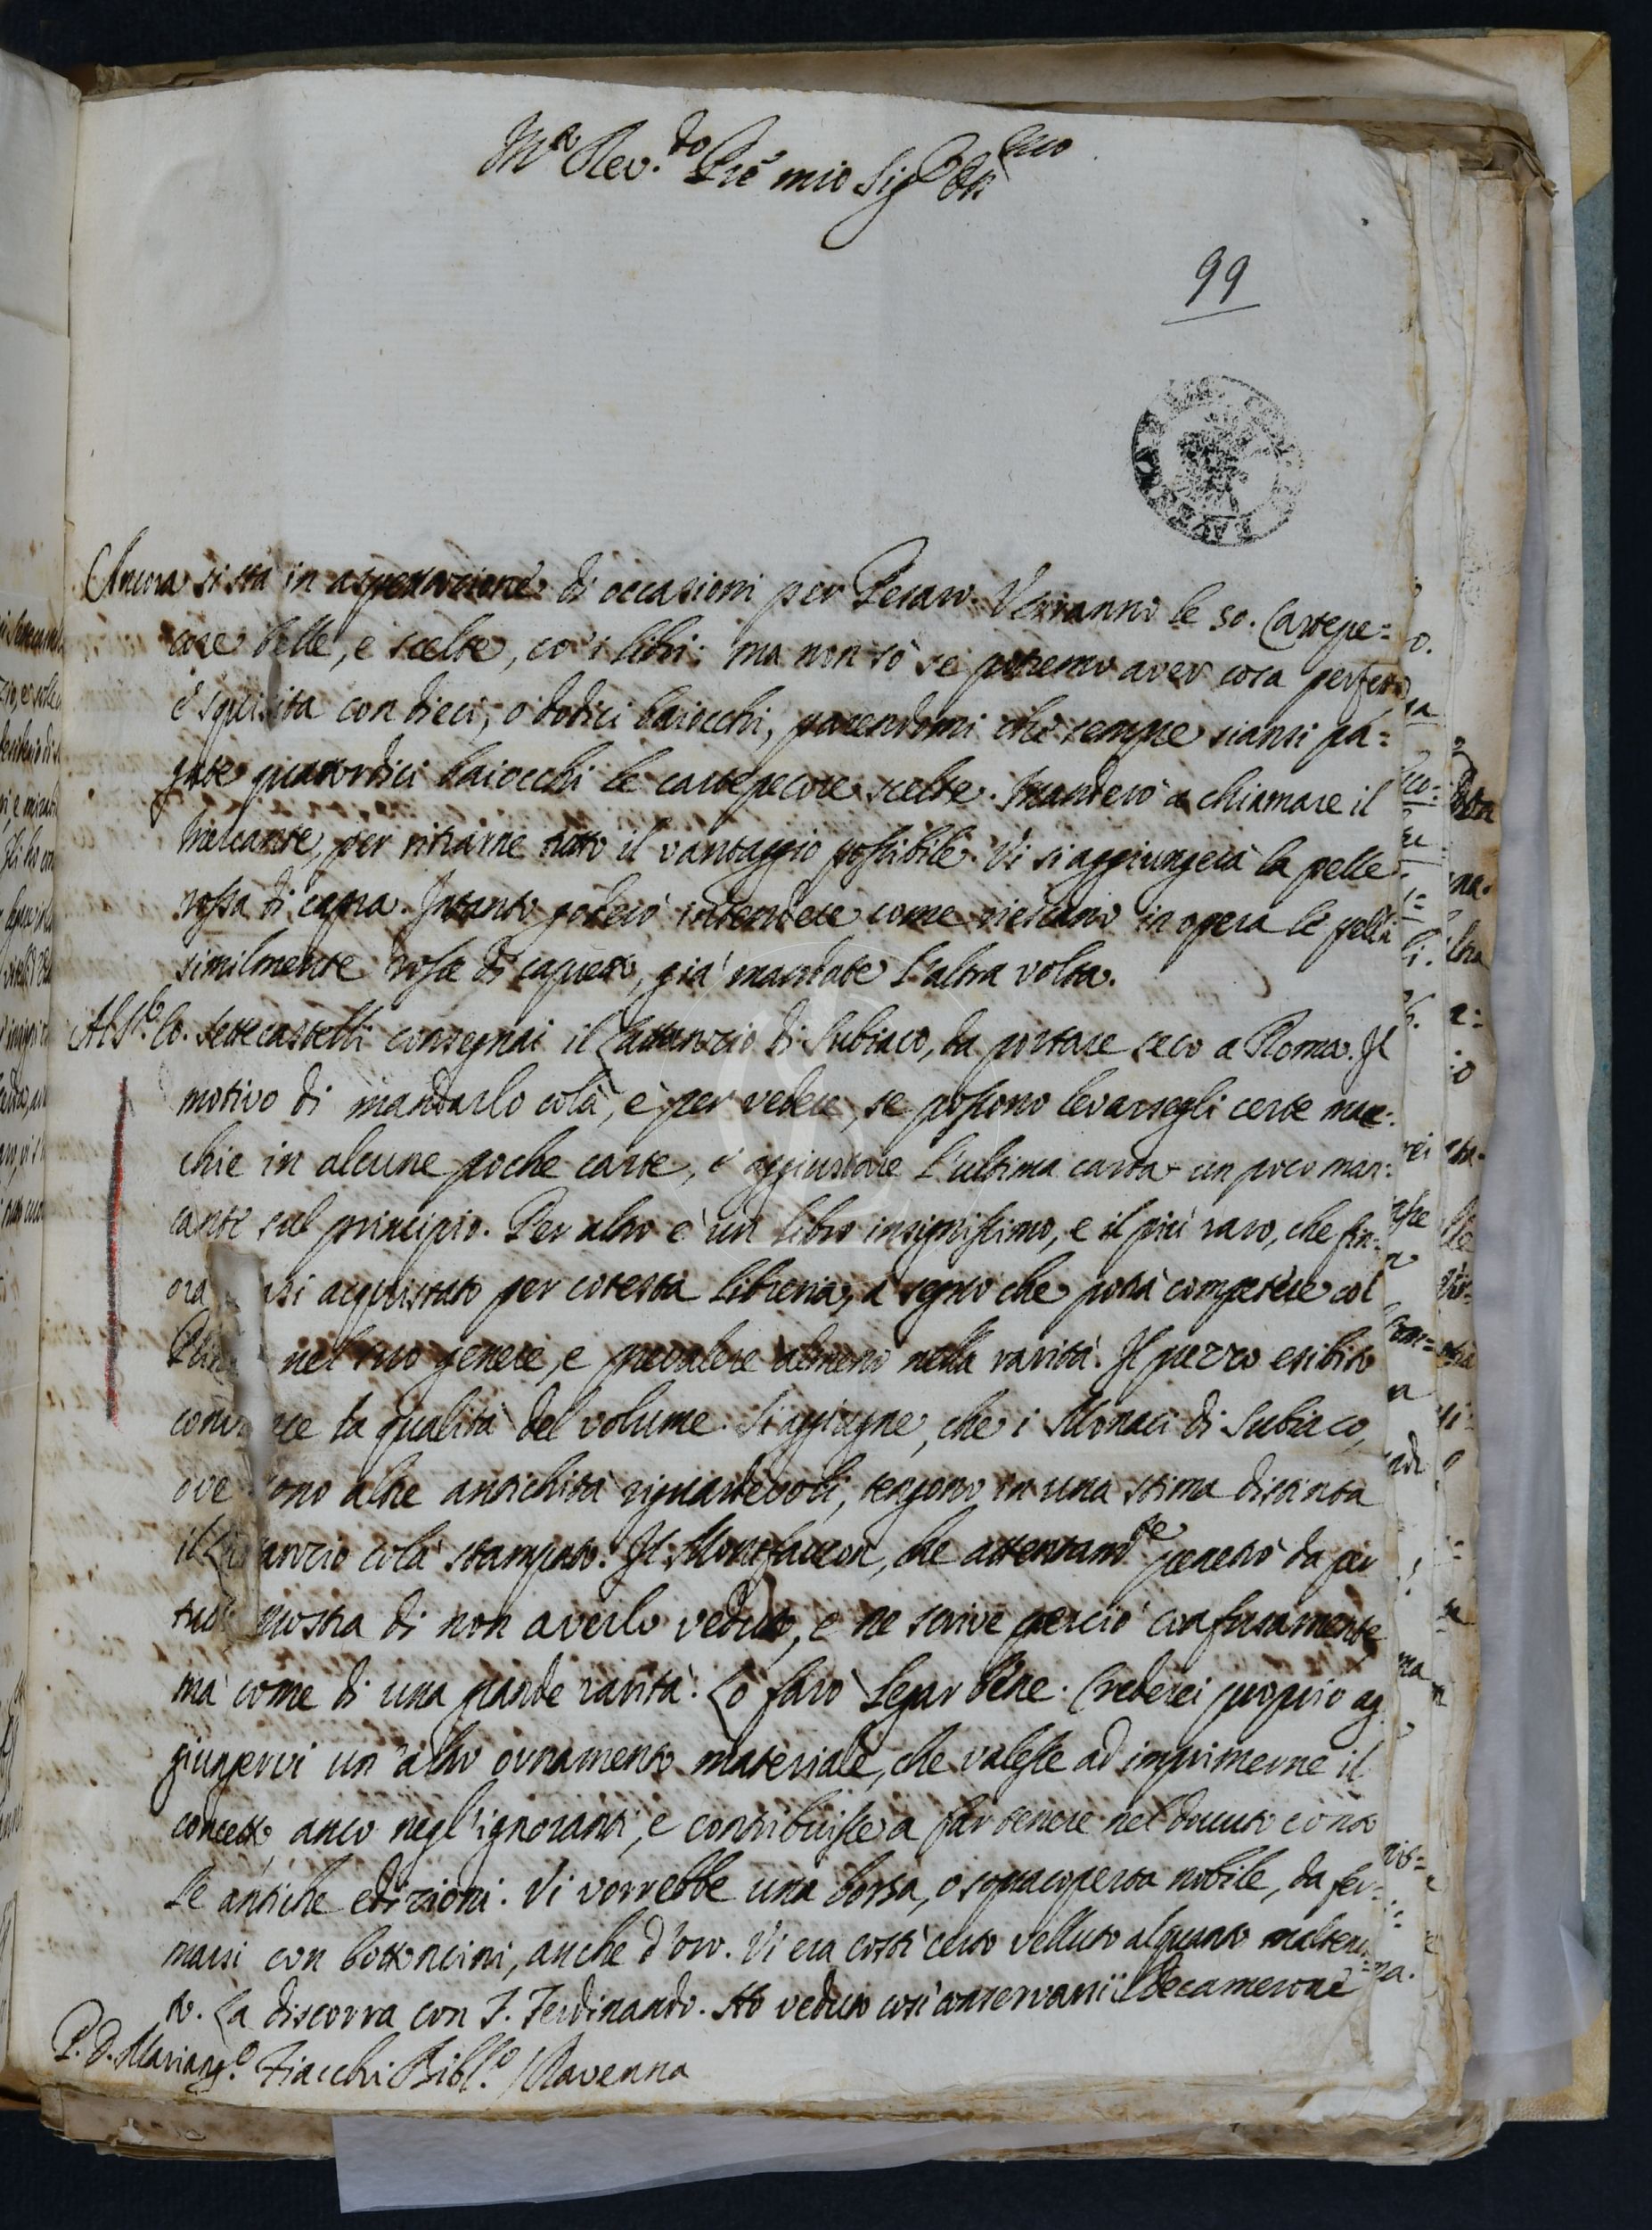 M.to Rev.do Pre mio Sig.r
99
Ancora si sta in aspettazione di occasioni per Pesaro. Verranno le 50. Cartepe=
core belle, e scelte, co i libri: ma non sò se potremo aver cosa perfetta
e squisita con dieci, o dodici baiocchi, parendomi che sempre siansi pa=
gate quattordici baiocchi le cartepecore scelte. Manderò a chiamare il
Mercante, per ritrarne tutto il vantaggio possibile. Vi si aggiungerà la pelle
rossa di capra. Intanto goderò intendere come riescano in opera le pelli
similmente rosse di capretto, già mandate l'altra volta.
Al S.r Co. Settecastelli consegnai il Lattanzio di Subiaco, da portare seco a Roma. Il
motivo di mandarlo colà, è per vedere, se possono levarsegli certe mac=
chie in alcune poche carte, e aggiustare l'ultima carta un poco man=
cante sul principio. Per altro è un libro insignissimo, e il più raro, che fin=
ora siasi acquistato per cotesta Libreria, a segno che potrà competere col
nel suo genere, e prevalere almeno nella rarità. Il prezzo esibito
la qualità del volume. Si aggiugne, che i Monaci di Subiaco,
ove sono altre antichità riguardevoli, tengono in una stima distinta
il Lattanzio colà stampato. Il Montfaucon, che attentam.te penetrò da per
tutto mostra di non averlo veduto, e ne scrive perciò confusamente,
ma come di una grande rarità. Lo farò legar bene. Crederei proprio ag
giungervi un altro ornamento materiale, che valesse ad imprimerne il
concetto anco negl'ignoranti, e contribuisse a far tenere nel dovuto conto
le antiche edizioni. Vi vorrebbe una borsa, o sopracoperta nobile, da fer=
marsi con bottoncini, anche d'oro. Vi era costì certo velluto alquanto maltenu
to. La discorra con F. Ferdinando. Ho veduto così conservarsi il Decamerone
P. D. Mariang.o Fiacchi Bibl.o / Ravenna